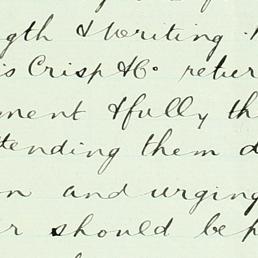 gth & Writing.
is Crisp & Co. retur
ment & fully th
tending them d
on and urging
r should be p